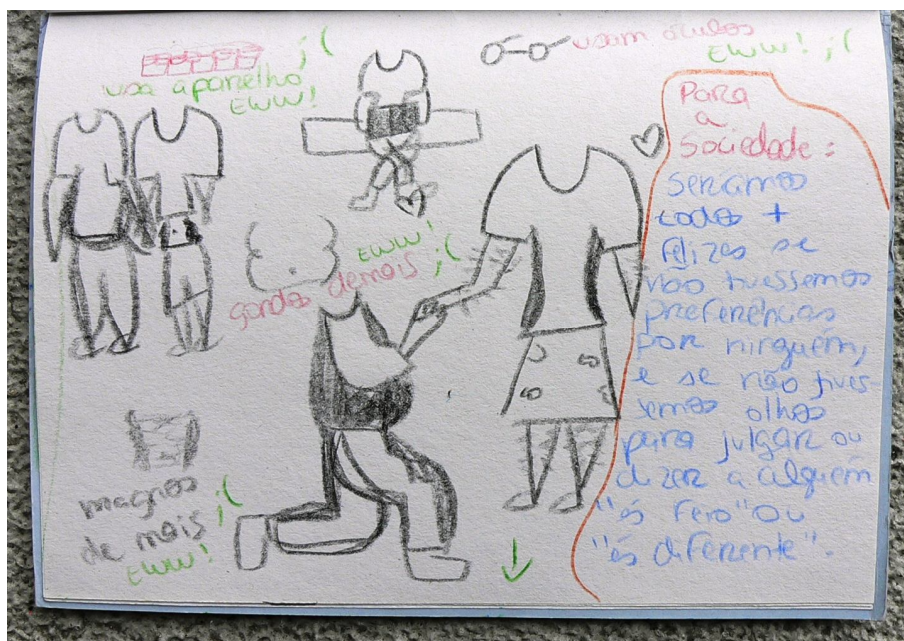 ;(
usa aparelho
EWW!
usam óculos
EWW! ;(
EWW!
gordos demais ;(
magros
de mais ;(
EWW!
Para
a
Sociedade:
seriamos
todos +
felizes se
não tivessemos
preferências
por ninguém,
e se não tives-
semos olhos
para julgar ou
dizer a alguém
"és feio" ou
"és diferente".